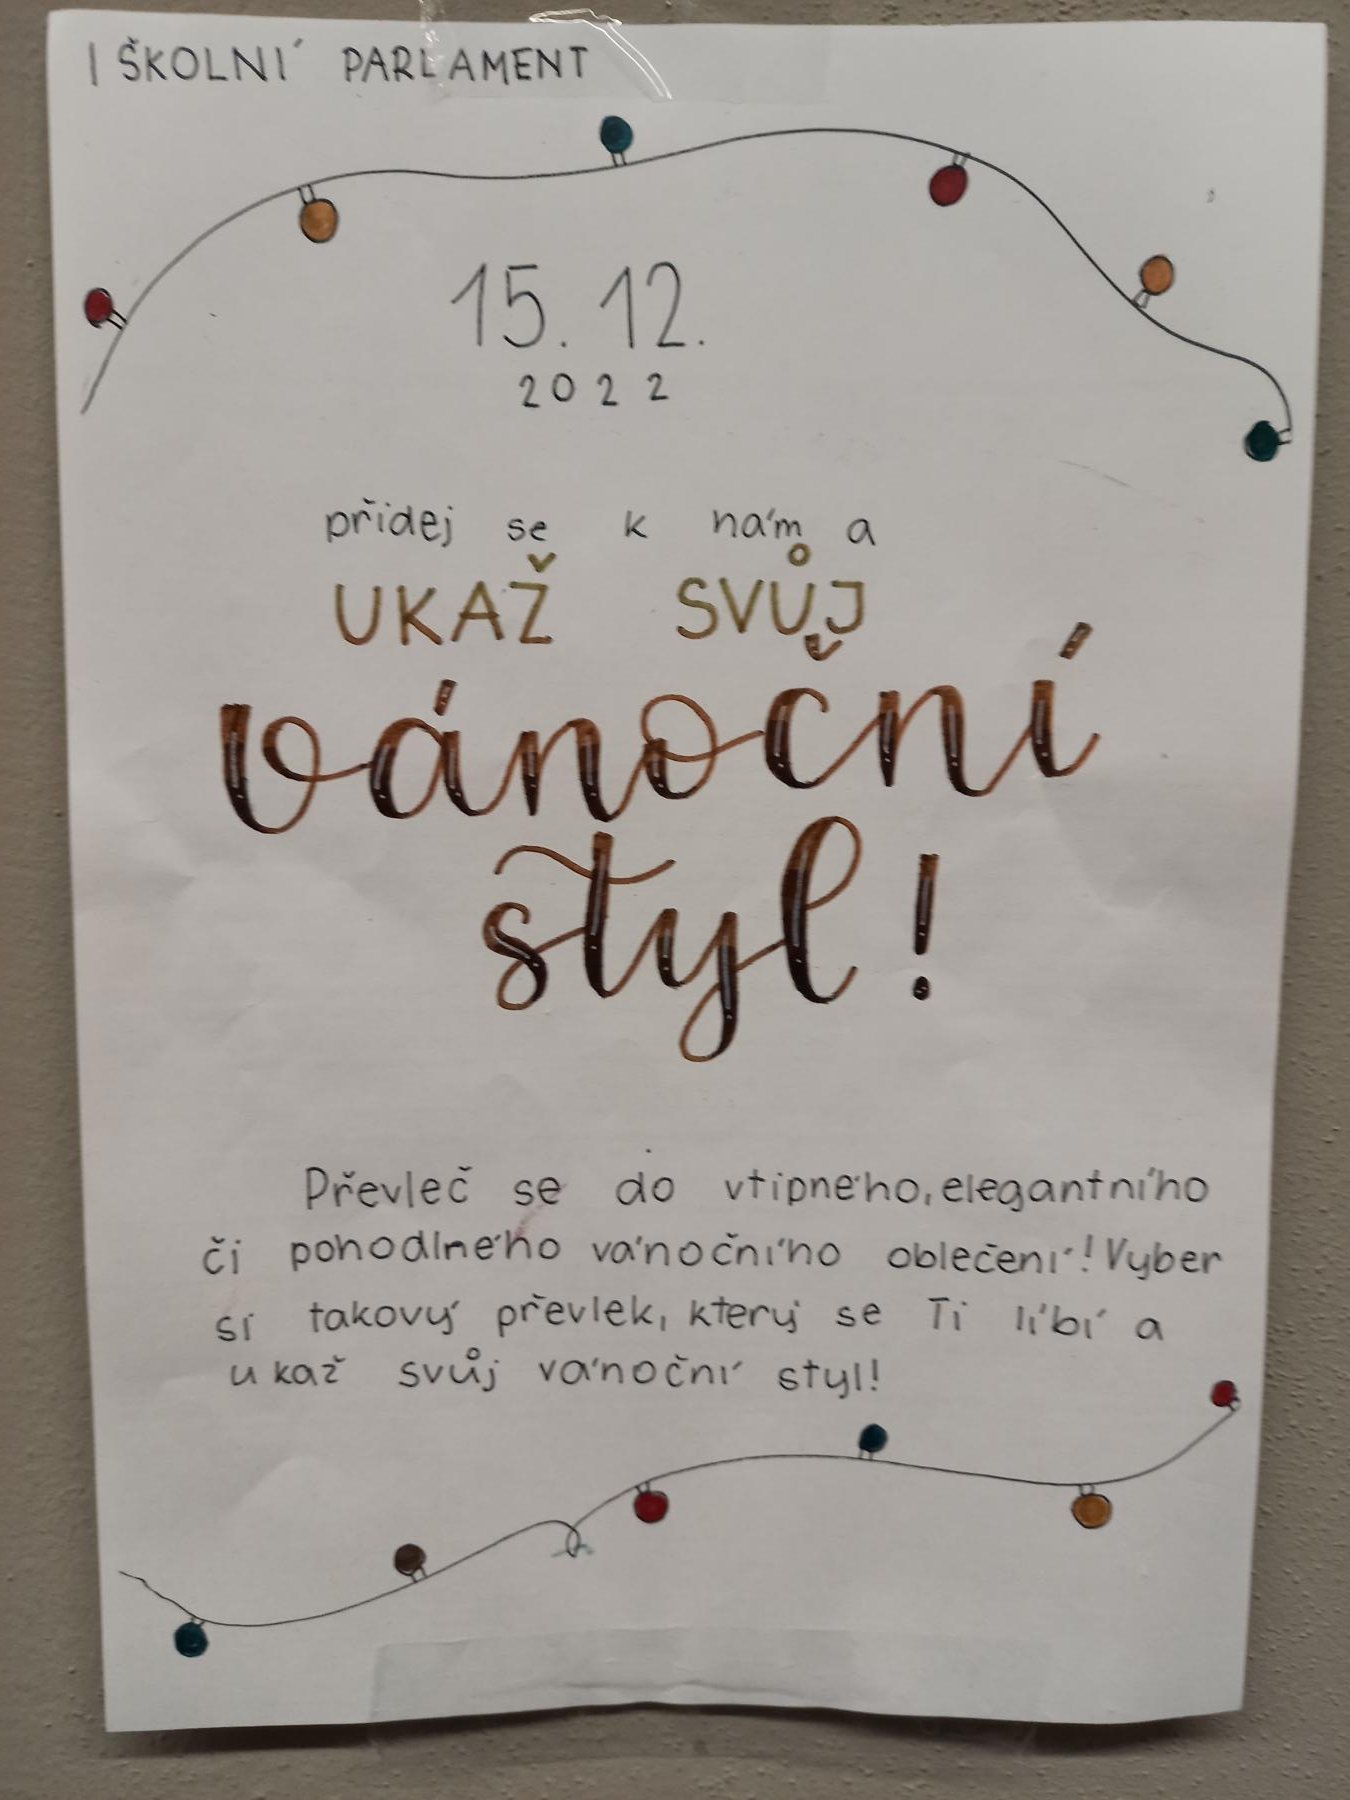 | ŠKOLNÍ PARLAMENT
15. 12.
2022
přidej se k nám a
UKAŽ SVŮJ
vánoční
styl!
Převleč se do vtipného, elegantního
či pohodlného vánočního oblečení! Vyber
si takový převlek, který se Ti líbí a
ukaž svůj vánoční styl!